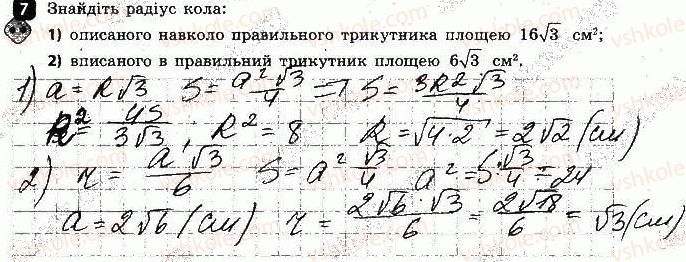 7 Знайдіть радіус кола:
1) описаного навколо правильного трикутника площею 16√3 см²;
2) вписаного в правильний трикутник площею 6√3 см².
1) a = R√3  S = a²√3/4 ⇒ S = 3R²√3/4
R² = 4S/3√3, R² = 8  R = √4·2 = 2√2 (см)
2) r = a√3/6  S = a² √3/4  a² = S·√3/4 = 24
a = 2√6 (см)  r = 2√6·√3/6 = 2√18/6 = √3 (см)